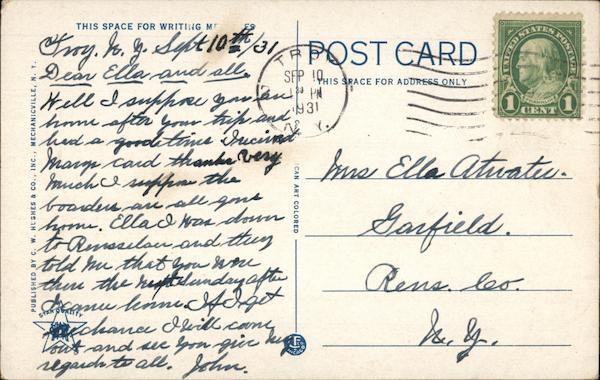 THIS SPACE FOR WRITING
Troy, N.Y. Sept 10th/31
Dear Ella and all.
Well I suppose you are
home after your trip and
had a good time I received
Marys card thanks very
much I suppose the
boarders are all gone
home. Ella I was down
to Rensselaer and they
told me that you were
there the next Sunday after
I came home. If I get
a chance I will come
out and see you give my
regards to all. John.
PUBLISHED BY C. W. HUGHES & CO., INC., MECHANICVILLE, N. Y.
STAR QUALITY
POST CARD
THIS SPACE FOR ADDRESS ONLY
TROY
SEP 10
PM
1931
N.Y.
UNITED STATES POSTAGE
FRANKLIN
1 1
CENT
Mrs Ella Atwater.
Garfield.
Rens. Co.
N.Y.
CAN ART COLORED